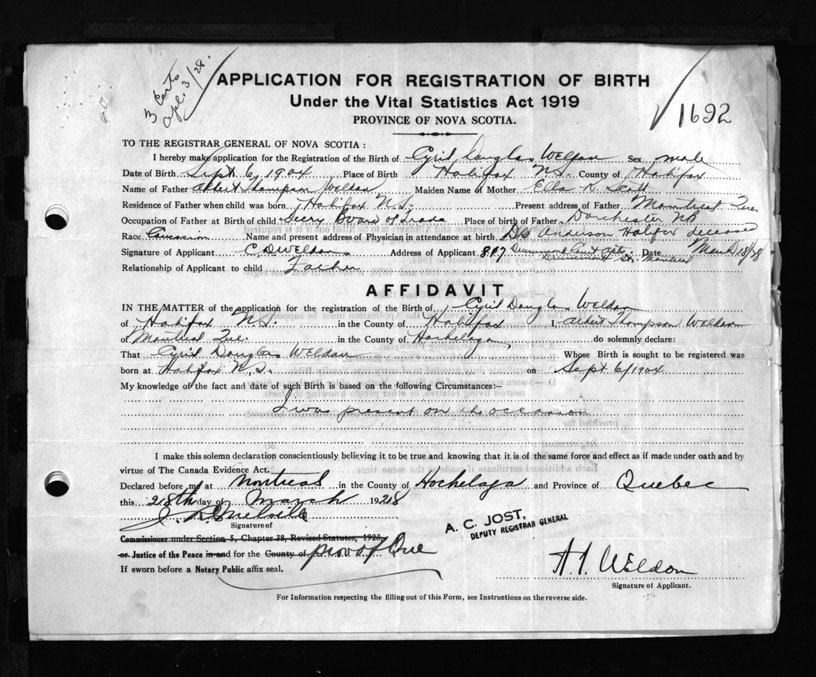 3 Cents
Apl. 3/28.
APPLICATION FOR REGISTRATION OF BIRTH
Under the Vital Statistics Act 1919
PROVINCE OF NOVA SCOTIA.
1692
TO THE REGISTRAR GENERAL OF NOVA SCOTIA:
I hereby make application for the Registration of the Birth of Cyril Douglas Weldon Sex male
Date of Birth Sept. 6, 1904 Place of Birth Halifax N.S. County of Halifax
Name of Father Albert Thompson Weldon Maiden Name of Mother Ella R. Scott
Residence of Father when child was born Halifax N.S. Present address of Father Montreal Que
Occupation of Father at Birth of child Secry Board of Trade Place of birth of Father Dorchester NB
Race Caucasian Name and present address of Physician in attendance at birth Anderson Halifax deceased
Signature of Applicant C. D. Weldon Address of Applicant 807 Drummond St. Montreal Date
Relationship of Applicant to child Father
AFFIDAVIT
IN THE MATTER of the application for the registration of the Birth of Cyril Douglas Weldon
of Halifax N.S. in the County of Halifax I, Albert Thompson Weldon
of Montreal Que. in the County of Hochelaga do solemnly declare:
That Cyril Douglas Weldon Whose Birth is sought to be registered was
born at Halifax N.S. on Sept 6/1904
My knowledge of the fact and date of such Birth is based on the following Circumstances:—
I was present on the occasion
I make this solemn declaration conscientiously believing it to be true and knowing that it is of the same force and effect as if made under oath and by
virtue of The Canada Evidence Act.
Declared before me at Montreal in the County of Hochelaga and Province of Quebec
this 28th day of March 1928
Melville
Signature of
A. C. JOST,
DEPUTY REGISTRAR GENERAL
Commissioner under Section 5, Chapter 38, Revised Statutes, 1923
or Justice of the Peace in and for the County of prov of Que
If sworn before a Notary Public affix seal.
A. T. Weldon
Signature of Applicant.
For Information respecting the filling out of this Form, see Instructions on the reverse side.